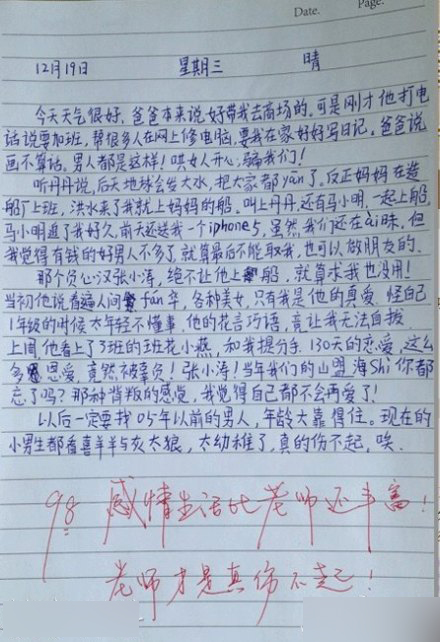 Date.
Page.
12月19日 星期三 晴
今天天气很好，爸爸本来说好带我去商场的。可是刚才他打电
话说要加班，帮很多人在网上修电脑，要我在家好好写日记。爸爸说
画不算话。男人都是这样！哄女人开心，骗我们！
听丹丹说，后天地球会发大水，把大家都yān了。反正妈妈在造
船厂上班，洪水来了我就上妈妈的船。叫上丹丹，还有马小明，一起上船。
马小明追了我好久，前天还送我一个iphone5，虽然我们还在ài昧，但
我觉得有钱的好男人不多了，就算最后不能取我，也可以做朋友的。
那个负心汉张小涛，绝不让他上船，就算求我也没用！
当初他说看遍人间fan华，各种美女，只有我是他的真爱。怪自己
1年级的时候太年轻不懂事，他的花言巧语，竟让我无法自拔。
上周他看上了3班的班花小燕，和我提分手，130天的恋爱，这么
多恩爱，竟然被辜负！张小涛！当年我们的山盟海Shi你都
忘了吗？那种背叛的感觉，我觉得自己都不会再爱了！
以后一定要找05年以前的男人，年龄大靠得住。现在的
小男生都看喜羊羊与灰太狼，太幼稚了，真的伤不起，唉。
98 感情生活比老师还丰富！
老师才是真伤不起！